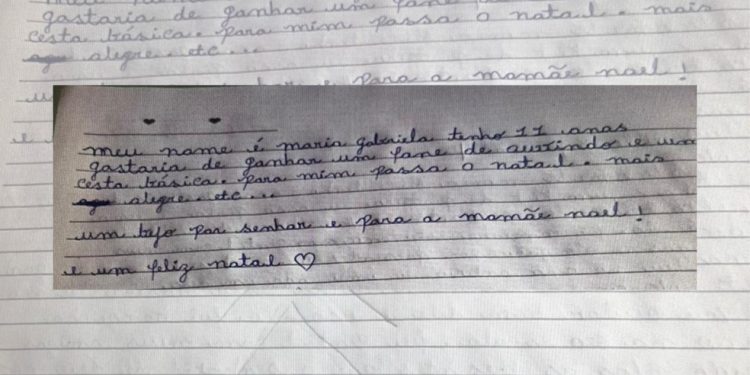 gostaria de ganhar um fone
cesta básica. para mim passa o natal. mais
alegre. etc...
para a mamãe noel!
meu nome é maria gabriela tenho 11 anos
gostaria de ganhar um fone de ouvindo e um
cesta básica. para mim passa o natal. mais
alegre. etc...
um bejo por senhor e para a mamãe noel!
e um feliz natal ♡